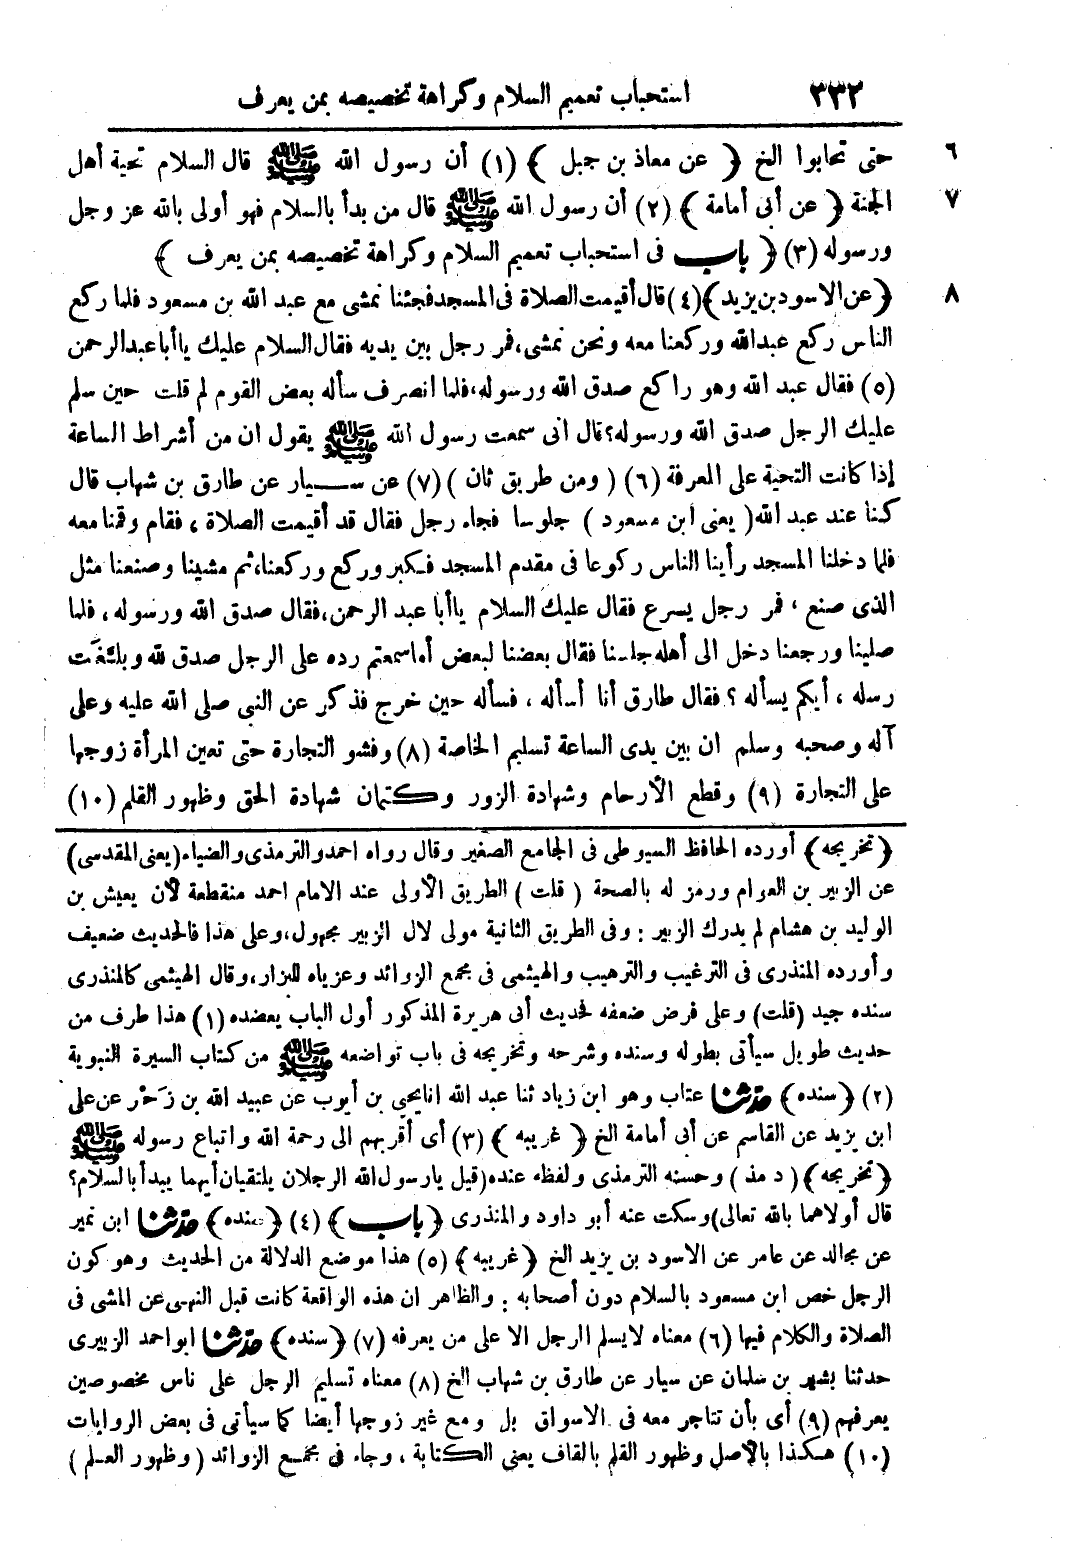 ٣٣٢ استحباب تعميم السلام وكراهة تخصيصه بمن يعرف
٦ حتى تحابوا الخ ﴿ عن معاذ بن جبل ﴾ (١) أن رسول الله ﷺ قال السلام تحية أهل
٧ الجنة ﴿ عن أبى أمامة ﴾ (٢) أن رسول الله ﷺ قال من بدأ بالسلام فهو أولى بالله عز وجل
ورسوله (٣) ﴿ باب فى استحباب تعميم السلام وكراهة تخصيصه بمن يعرف ﴾
٨ ﴿ عن الاسود بن يزيد ﴾ (٤) قال أقيمت الصلاة فى المسجد فجئنا نمشى مع عبد الله بن مسعود فلما ركع
الناس ركع عبد الله وركعنا معه ونحن نمشى، فمر رجل بين يديه فقال السلام عليك يا أبا عبد الرحمن
(٥) فقال عبد الله وهو راكع صدق الله ورسوله، فلما انصرف سأله بعض القوم لم قلت حين سلم
عليك الرجل صدق الله ورسوله؟ قال انى سمعت رسول الله ﷺ يقول ان من أشراط الساعة
إذا كانت التحية على المعرفة (٦) ( ومن طريق ثان ) (٧) عن سيار عن طارق بن شهاب قال
كنا عند عبد الله ( يعنى ابن مسعود ) جلوسا فجاء رجل فقال قد أقيمت الصلاة ، فقام وقمنا معه
فلما دخلنا المسجد رأينا الناس ركوعا فى مقدم المسجد فكبر وركع وركعنا، ثم مشينا وصنعنا مثل
الذى صنع ، فمر رجل يسرع فقال عليك السلام يا أبا عبد الرحمن، فقال صدق الله ورسوله ، فلما
صلينا ورجعنا دخل الى أهله جلسنا فقال بعضنا لبعض أما سمعتم رده على الرجل صدق لله وبلَّغَت
رسله ، أيكم يسأله ؟ فقال طارق أنا أسأله ، فسأله حين خرج فذكر عن النبى صلى الله عليه وعلى
آله وصحبه وسلم ان بين يدى الساعة تسليم الخاصة (٨) وفشو التجارة حتى تعين المرأة زوجها
على التجارة (٩) وقطع الأرحام وشهادة الزور وكتمان شهادة الحق وظهور القلم (١٠)
﴿ تخريجه ﴾ أورده الحافظ السيوطى فى الجامع الصغير وقال رواه احمد والترمذى والضياء (يعنى المقدسى)
عن الزبير بن العوام ورمز له بالصحة ( قلت ) الطريق الأولى عند الامام احمد منقطعة لأن يعيش بن
الوليد بن هشام لم يدرك الزبير : وفى الطريق الثانية مولى لال الزبير مجهول، وعلى هذا فالحديث ضعيف
وأورده المنذرى فى الترغيب والترهيب والهيثمى فى مجمع الزوائد وعزياه للبزار، وقال الهيثمى كالمنذرى
سنده جيد (قلت) وعلى فرض ضعفه فحديث أبى هريرة المذكور أول الباب يعضده (١) هذا طرف من
حديث طويل سيأتى بطوله وسنده وشرحه وتخريجه فى باب تواضعه ﷺ من كتاب السيرة النبوية
(٢) ﴿ سنده ﴾ حدثنا عتاب وهو ابن زياد ثنا عبد الله انا يحيى بن أيوب عن عبيد الله بن زَحْر عن على
ابن يزيد عن القاسم عن أبى أمامة الخ ﴿ غريبه ﴾ (٣) أى أقربهم الى رحمة الله واتباع رسوله ﷺ
﴿ تخريجه ﴾ ( د مذ ) وحسنه الترمذى ولفظه عنده (قيل يارسول الله الرجلان يلتقيان أيهما يبدأ بالسلام؟
قال أولاهما بالله تعالى) وسكت عنه أبو داود والمنذرى ﴿ باب ﴾ (٤) ﴿ سنده ﴾ حدثنا ابن نمير
عن مجالد عن عامر عن الاسود بن يزيد الخ ﴿ غريبه ﴾ (٥) هذا موضع الدلالة من الحديث وهو كون
الرجل خص ابن مسعود بالسلام دون أصحابه : والظاهر ان هذه الواقعة كانت قبل النهى عن المشى فى
الصلاة والكلام فيها (٦) معناه لا يسلم الرجل الا على من يعرفه (٧) ﴿ سنده ﴾ حدثنا ابو احمد الزبيرى
حدثنا بشير بن سلمان عن سيار عن طارق بن شهاب الخ (٨) معناه تسليم الرجل على ناس مخصوصين
يعرفهم (٩) أى بأن تتاجر معه فى الاسواق بل ومع غير زوجها أيضا كما سيأتى فى بعض الروايات
(١٠) هكذا بالأصل وظهور القلم بالقاف يعنى الكتابة ، وجاء فى مجمع الزوائد ( وظهور العلم )